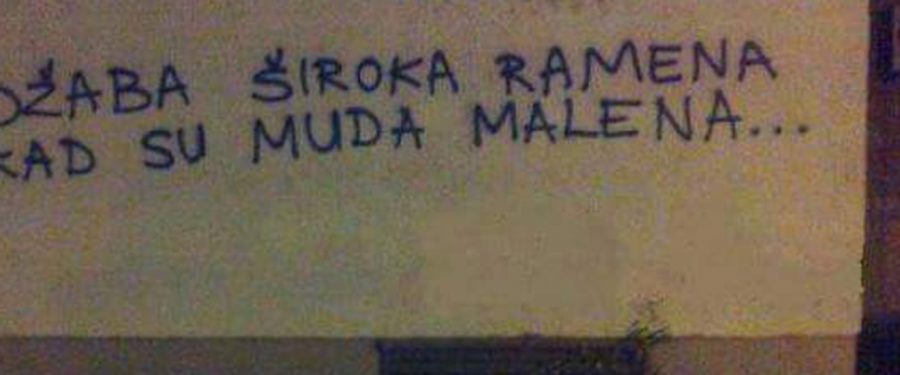 DŽABA ŠIROKA RAMENA
KAD SU MUDA MALENA...